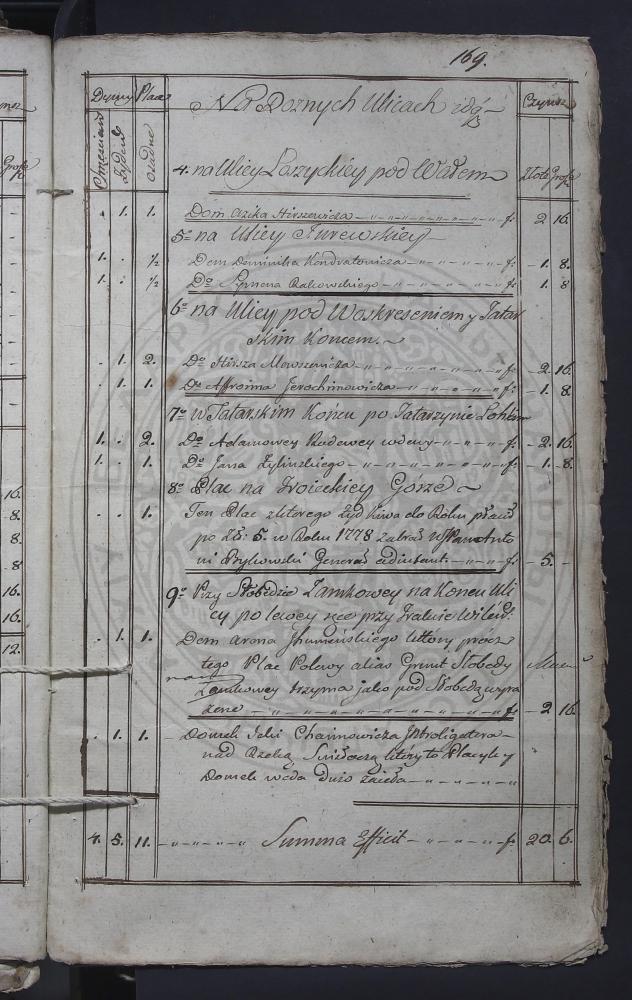 169.
Dymy Place Czynsz
Na Roznych Ulicach idą
Chrześcian Żydów osiadłe
4. na Ulicy Łoszyckiey pod Wałem Złote Grosze
. 1. 1. Dom Azika Hirszewicza f: 2 16.
5 na Ulicy Jurewskiey
1. . ½ Dom Dominika Kondratowicza f: 1. 8.
1. . ½ Do Symona Rakowskiego f: 1. 8
6 na Ulicy pod Woskreseniem y Tatar
skim Koncem.
. 1. 2. Do Hirsza Mowszewicza f: 2 16.
. 1. 1. Do Afroima Jerochimowicza f: 1. 8.
7 w Tatarskim Koncu po Tatarzynie
1. . 2. Do Adamowey Rudowey wdowy f: 2. 16.
1. . 1. Do Jana f: 1. 8.
8 Plac na Troieckiey Gorze
. . 1. Ten Plac z ktorego Żyd Kiwa do Roku płacił
po Zł: 5. w Roku 1778 zabrał W Pan Anto
ni Bykowski Generał adiutant. f: 5. –
9 Przy Słobodzie Zamkowey na Koncu Uli
cy po lewey ręce przy Trakcie Wileń:
. 1. 1. Dom Arona Jhumeńskiego ktory procz
tego Plac Polowy alias Grunt Słobody
Zamkowey trzyma jako pod Słobodą wyra
żono f: 2 16.
. 1. 1. Domek Icki Chaimowicza Jntroligatora
nad Rzeką Swisłoczą ktory to Placyk y
Domek woda dużo zaieła
4. 5. 11. Summa Efficit f: 20. 6.